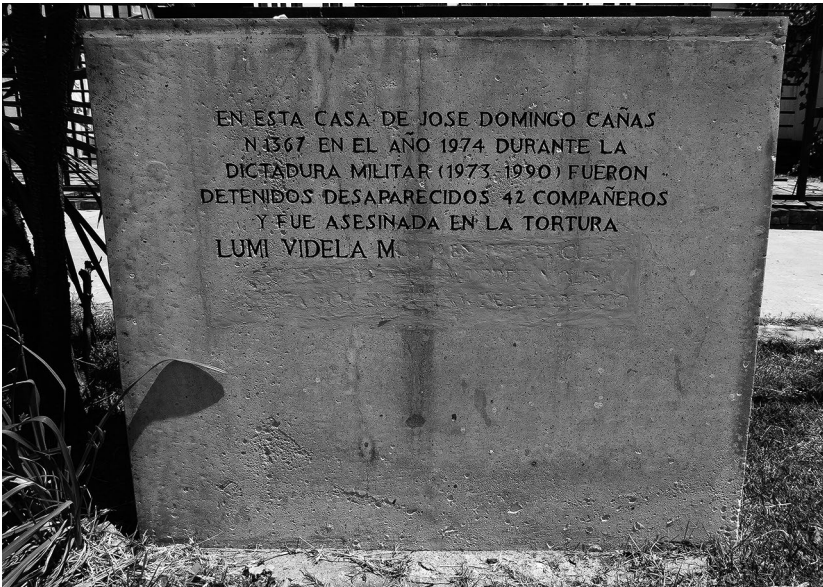 EN ESTA CASA DE JOSE DOMINGO CAÑAS
N.1367 EN EL AÑO 1974 DURANTE LA
DICTADURA MILITAR (1973-1990) FUERON
DETENIDOS DESAPARECIDOS 42 COMPAÑEROS
Y FUE ASESINADA EN LA TORTURA
LUMI VIDELA M.